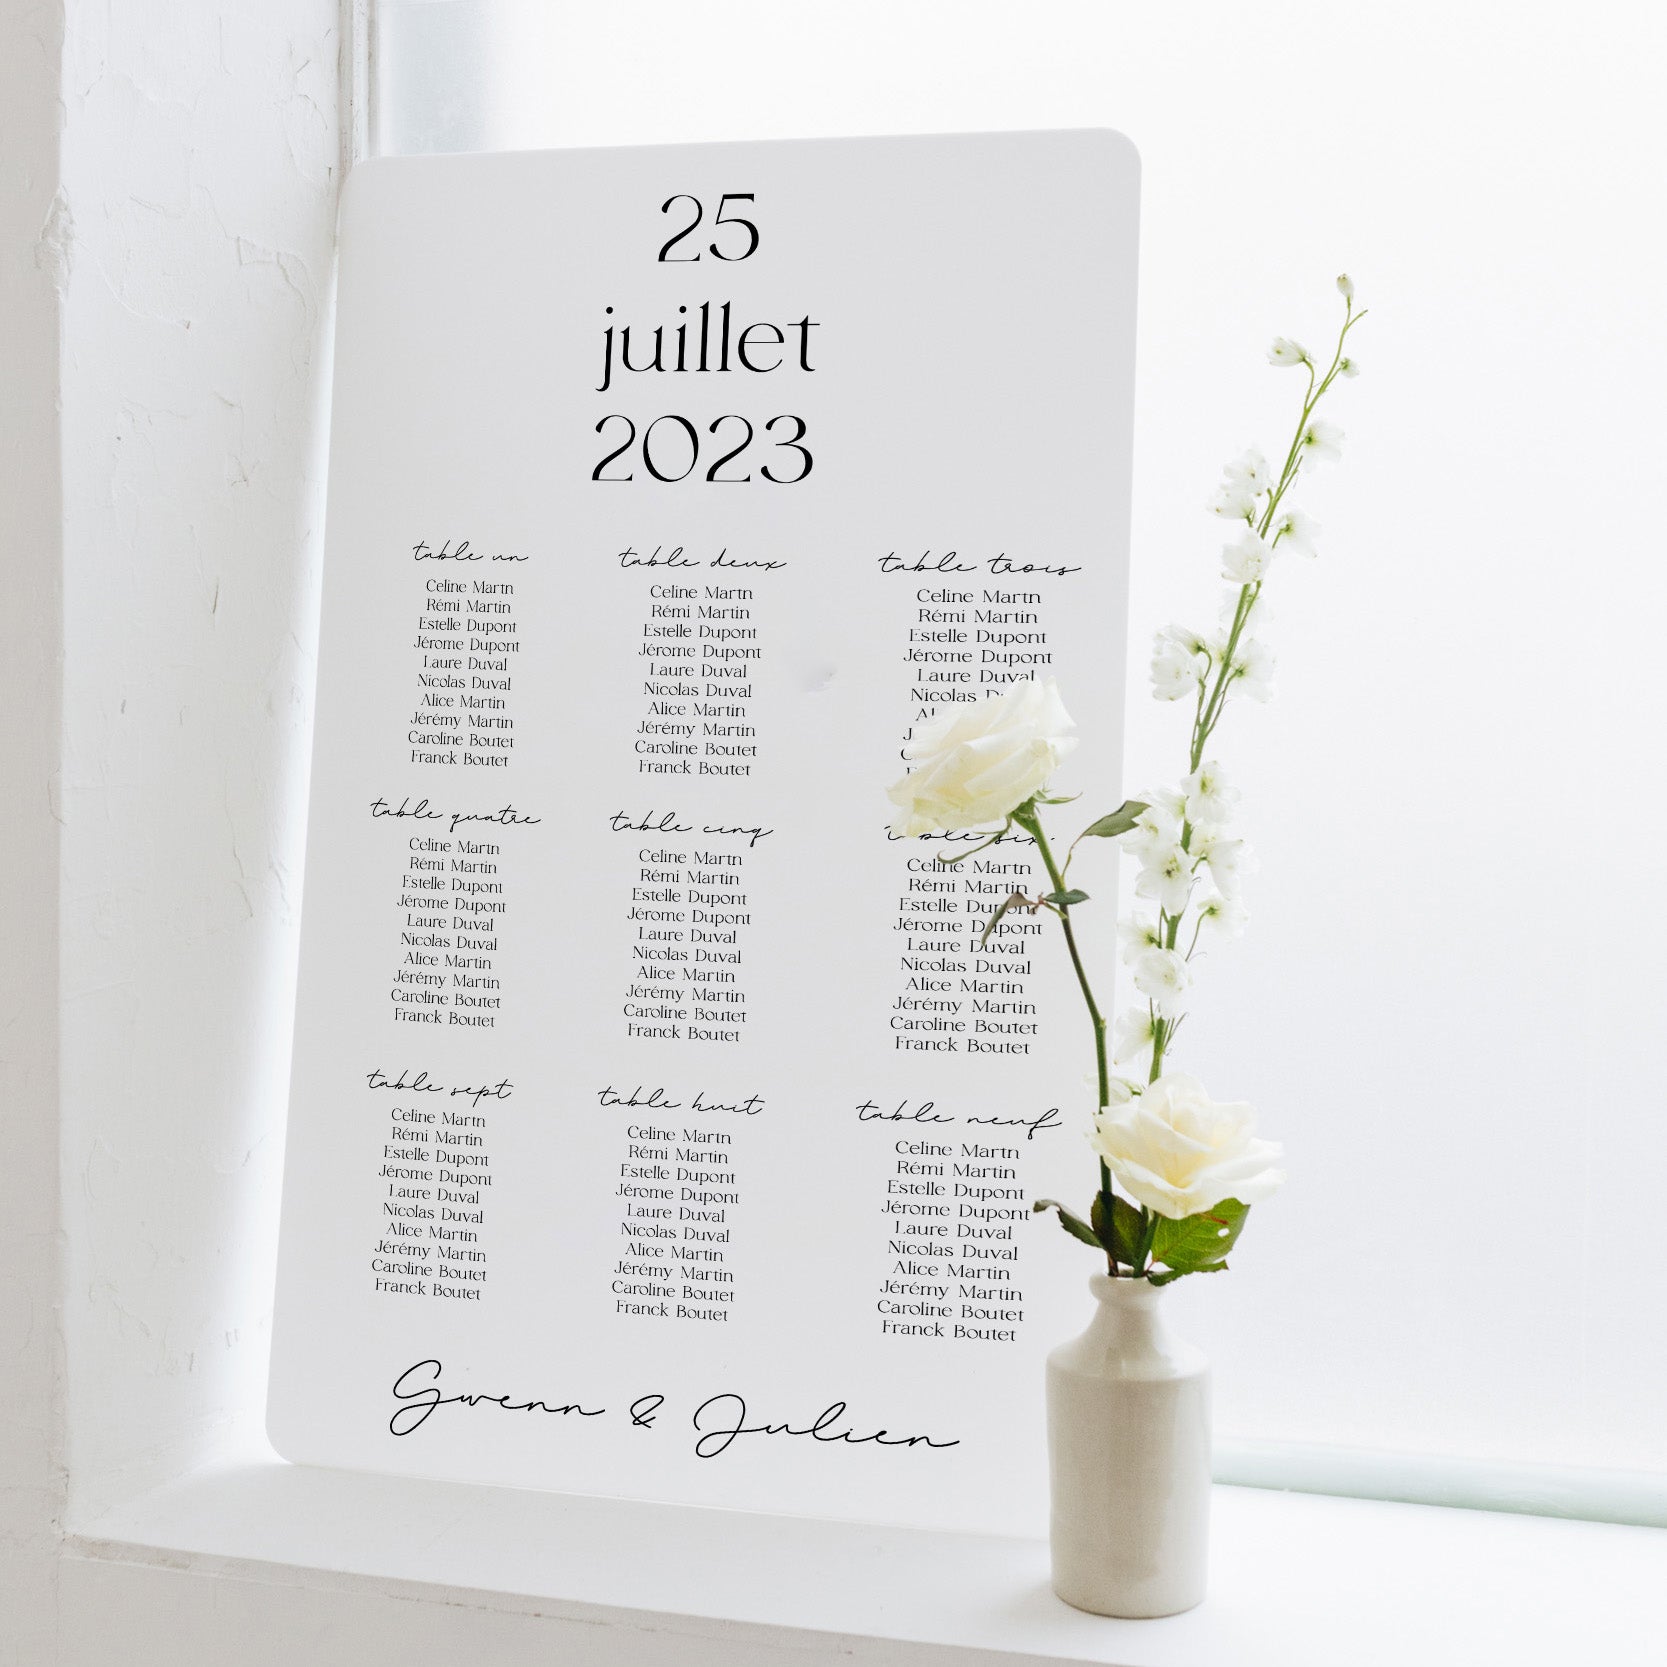 25
juillet
2023
table un
Celine Martn
Rémi Martin
Estelle Dupont
Jérome Dupont
Laure Duval
Nicolas Duval
Alice Martin
Jérémy Martin
Caroline Boutet
Franck Boutet
table deux
Celine Martn
Rémi Martin
Estelle Dupont
Jérome Dupont
Laure Duval
Nicolas Duval
Alice Martin
Jérémy Martin
Caroline Boutet
Franck Boutet
table trois
Celine Martn
Rémi Martin
Estelle Dupont
Jérome Dupont
Laure Duval
Nicolas
table quatre
Celine Martn
Rémi Martin
Estelle Dupont
Jérome Dupont
Laure Duval
Nicolas Duval
Alice Martin
Jérémy Martin
Caroline Boutet
Franck Boutet
table cinq
Celine Martn
Rémi Martin
Estelle Dupont
Jérome Dupont
Laure Duval
Nicolas Duval
Alice Martin
Jérémy Martin
Caroline Boutet
Franck Boutet
table six
Celine Martn
Rémi Martin
Estelle Dupont
Jérome Dupont
Laure Duval
Nicolas Duval
Alice Martin
Jérémy Martin
Caroline Boutet
Franck Boutet
table sept
Celine Martn
Rémi Martin
Estelle Dupont
Jérome Dupont
Laure Duval
Nicolas Duval
Alice Martin
Jérémy Martin
Caroline Boutet
Franck Boutet
table huit
Celine Martn
Rémi Martin
Estelle Dupont
Jérome Dupont
Laure Duval
Nicolas Duval
Alice Martin
Jérémy Martin
Caroline Boutet
Franck Boutet
table neuf
Celine Martn
Rémi Martin
Estelle Dupont
Jérome Dupont
Laure Duval
Nicolas Duval
Alice Martin
Jérémy Martin
Caroline Boutet
Franck Boutet
Gwenn & Julien